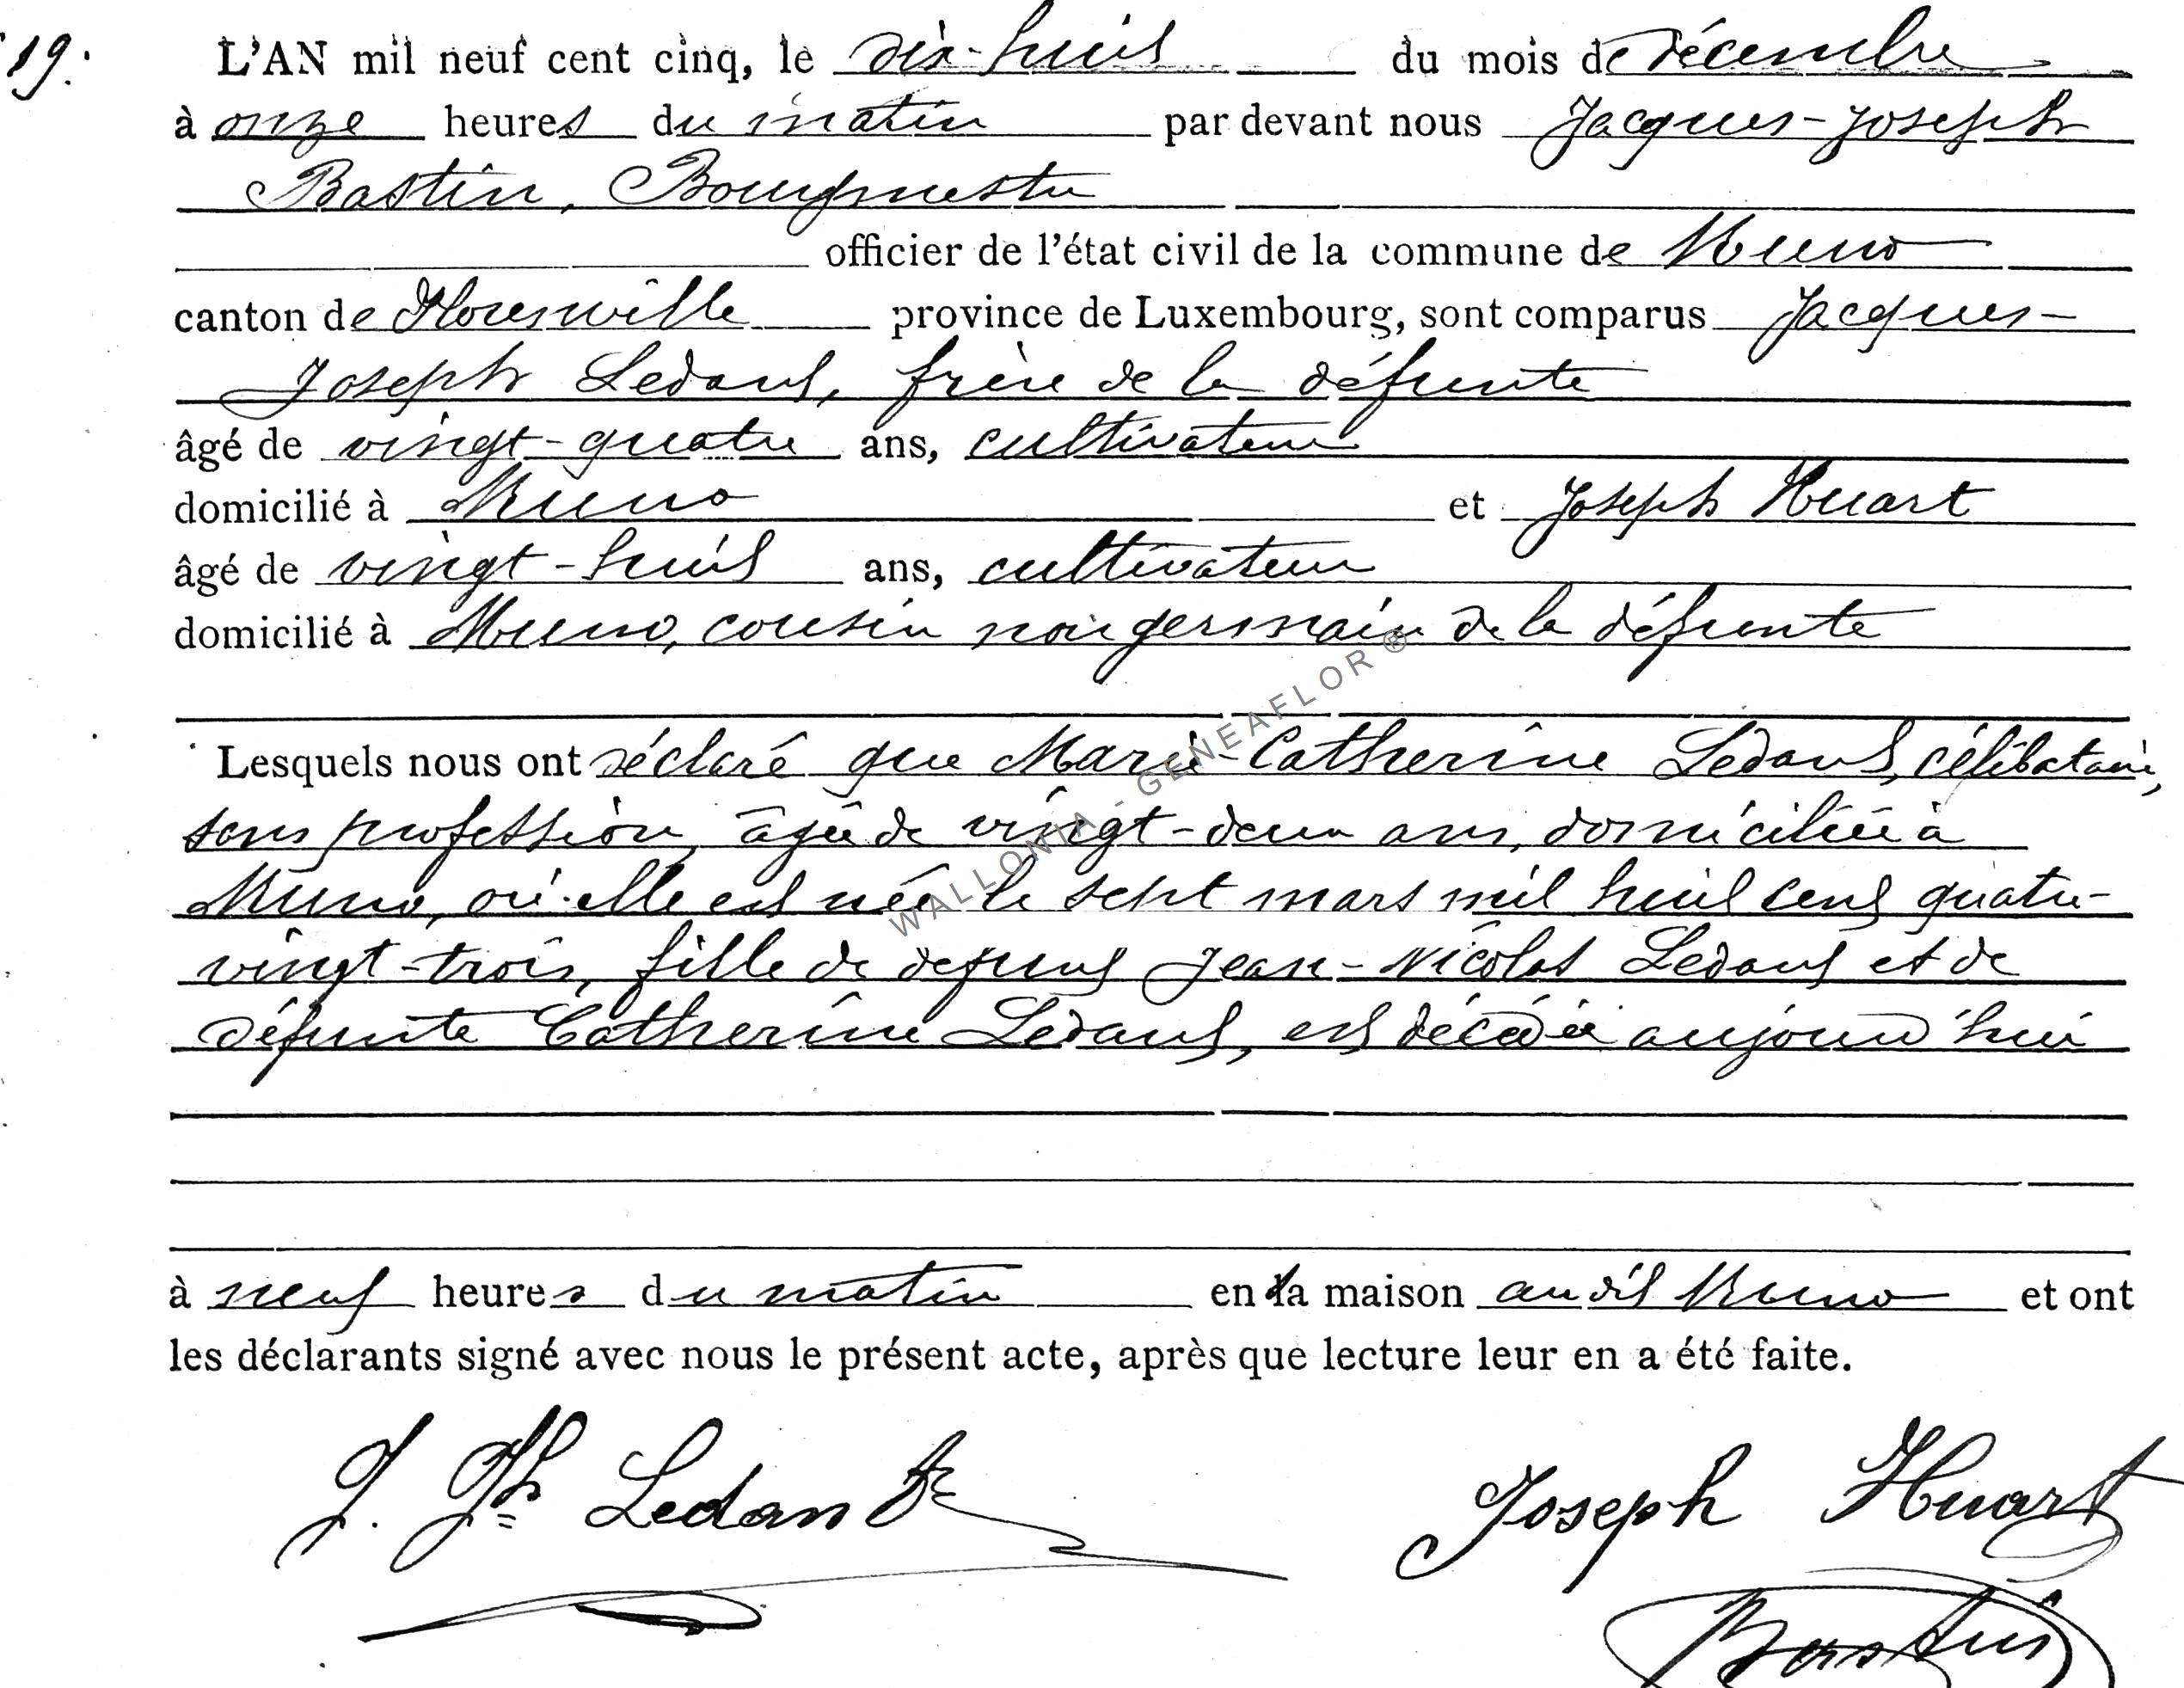 19.
L'AN mil neuf cent cinq, le dix-huit du mois de décembre
à onze heures du matin par devant nous Jacques-Joseph
Bastin, Bourgmestre
officier de l'état civil de la commune de Muno
canton de Florenville province de Luxembourg, sont comparus Jacques-
Joseph Ledant, frère de la défunte
âgé de vingt-quatre ans, cultivateur
domicilié à Muno et Joseph Huart
âgé de vingt-huit ans, cultivateur
domicilié à Muno, cousin non germain de la défunte
Lesquels nous ont déclaré que Marie-Catherine Ledant, célibataire,
sans profession, âgée de vingt-deux ans, domiciliée à
Muno, où elle est née le sept mars mil huit cent quatre-
vingt-trois, fille de defunt Jean-Nicolas Ledant et de
défunte Catherine Ledant, est décédée aujourd'hui
à neuf heures du matin en la maison au dit Muno et ont
les déclarants signé avec nous le présent acte, après que lecture leur en a été faite.
J. Jh Ledant Joseph Huart
Bastin
WALLONIA - GENEAFLOR ®